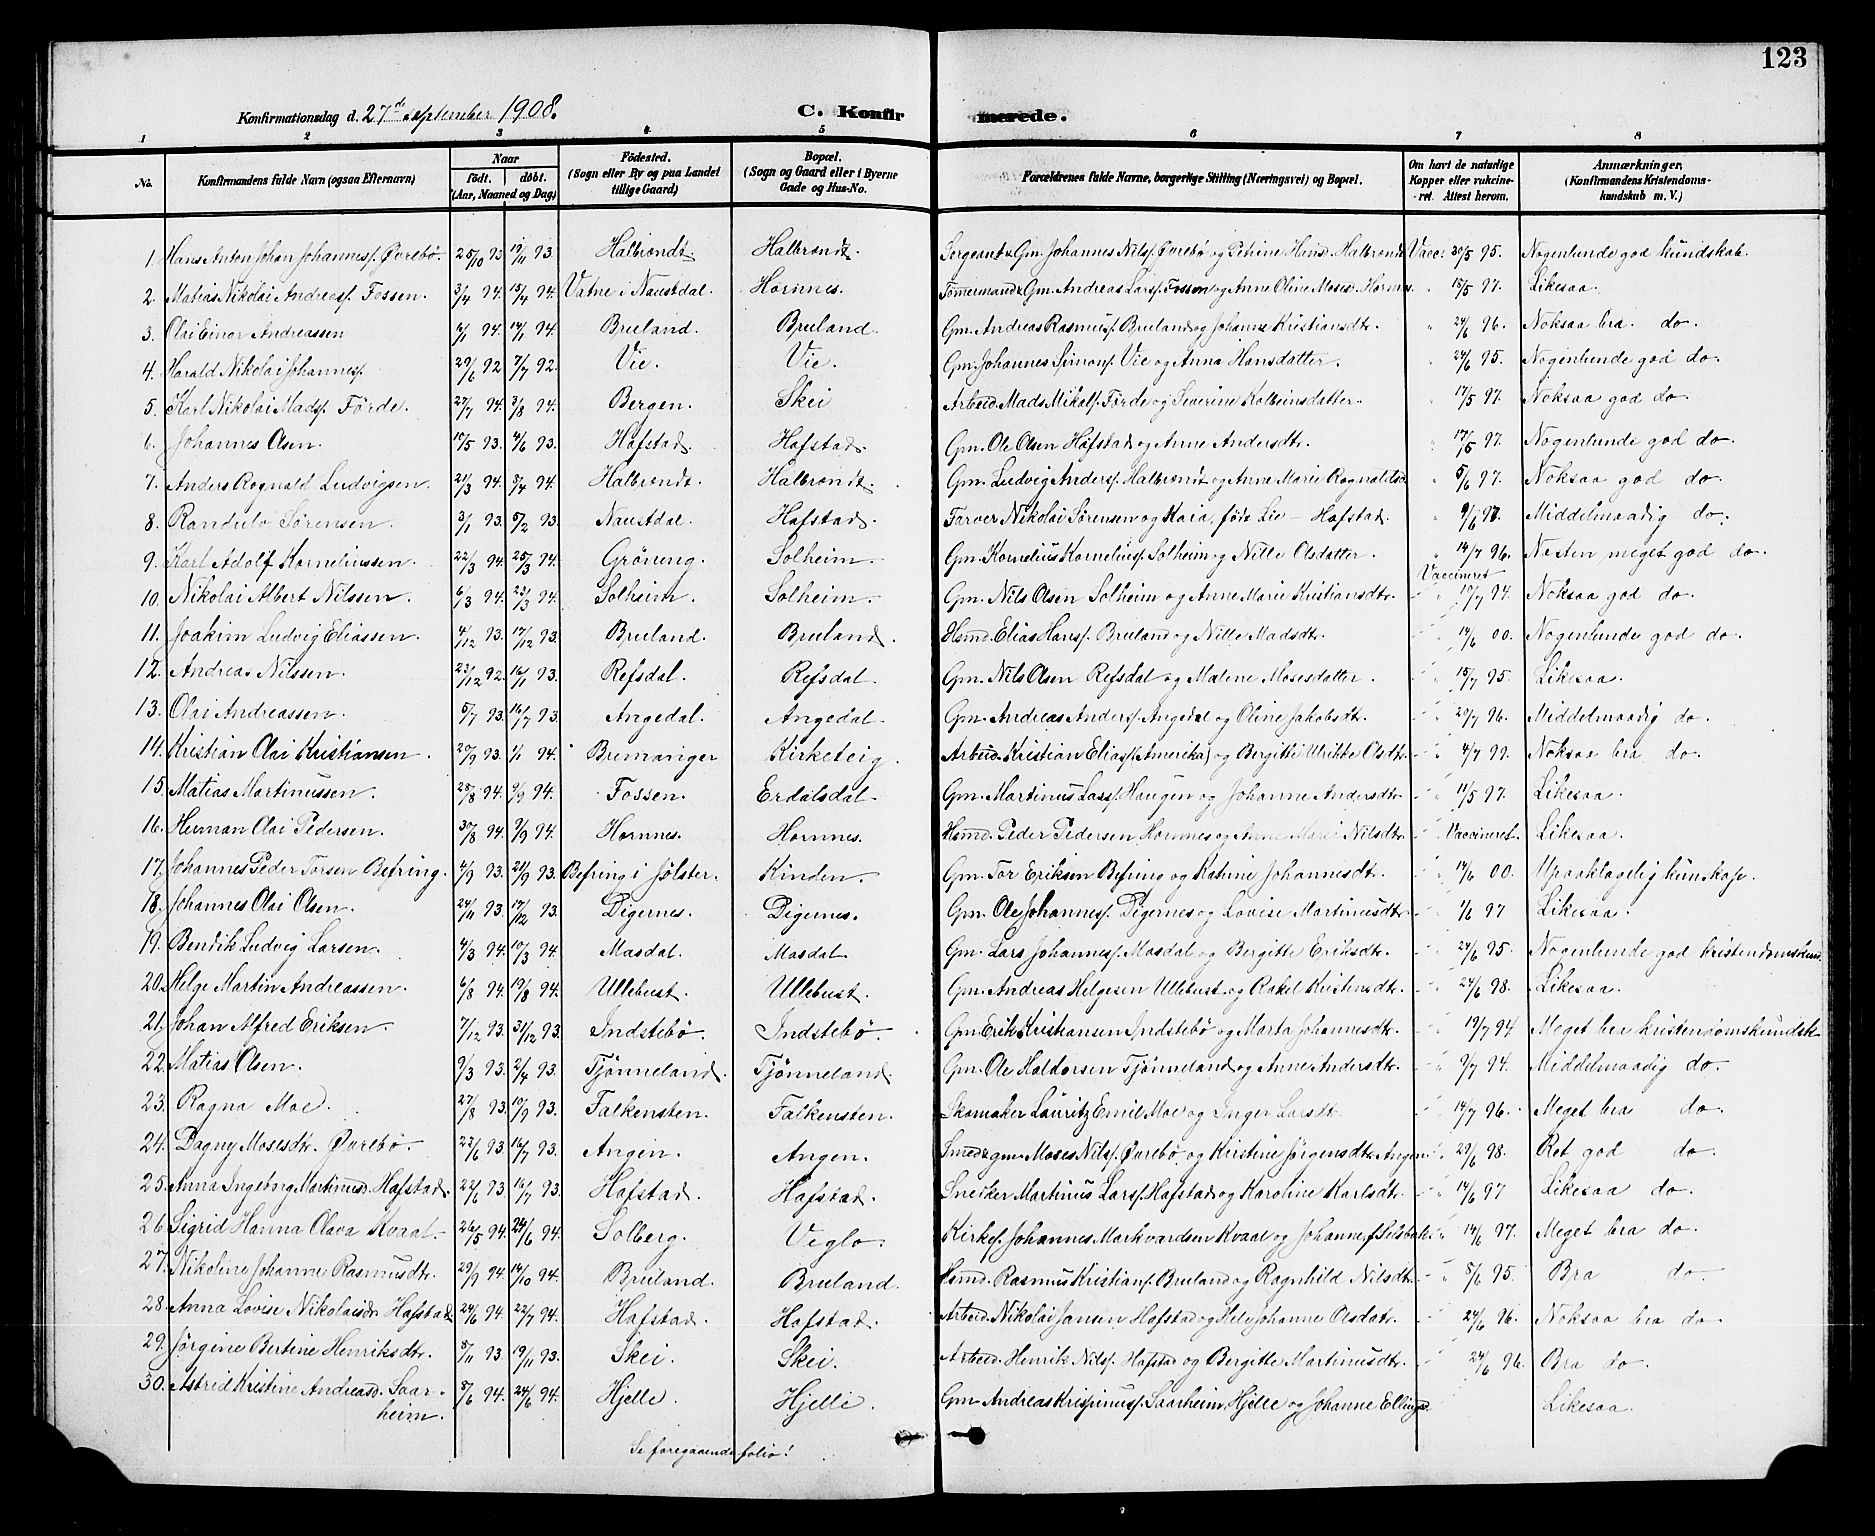 123
Konfirmationsdag d. 27de september 1908.
C. Konfirmerede.
1 2 3 4 5 6 7 8
No.
Konfirmandens fulde Navn (ogsaa Efternavn)
Naar
født. døbt.
(Aar, Maaned og Dag)
Födested.
(Sogn eller By og paa Landet tillige Gaard)
Bopæl.
(Sogn og Gaard eller i Byerne Gade og Hus-No.
Forældrenes fulde Navne, borgerlige Stilling (Næringsvei) og Bopæl.
Om havt de naturlige Kopper eller vakcineret. Attest herom.
Anmærkninger.
(Konfirmandens Kristendomskundskab m. V.)
1. Hans Anton Johan Johannesf. Øvrebø. 25/10 93 19/11 93. Halbrendt. Halbrendt. Sergeant & Gm. Johannes Nilsf. Øvrebø og Petrine Hansd. Halbrendt Vacc: 30/5 95. Nogenlunde god kundskab.
2. Matias Nikolai Andreasf. Fossen. 3/4 94. 15/4 94. Vatne i Naustdal. Hornnes. Tømermand & Gm. Andreas Larsf. Fossen og Anne Oline Mosesd. Hornnes. " 18/5 97. Likesaa.
3. Olai Einar Andreassen 4/1 94. 14/1 94. Bruland. Bruland. Gm. Andreas Rasmusf. Bruland og Johanne Kristiansdtr. " 24/6 96. Noksaa bra do.
4. Harald Nikolai Johannesf. 29/6 92 7/7 92. Vie. Vie. Gm. Johannes Simonf. Vie og Anna Hansdatter. " 24/6 95. Nogenlunde god do.
5. Karl Nikolai Madsf. Förde. 27/7 94. 3/8 94. Bergen. Skei Arbeid. Mads Mikalf. Förde og Severine Kolbeinsdatter. " 17/5 97. Noksaa god do.
6. Johannes Olsen. 10/5 93. 4/6 93. Hafstad. Hafstad. Gm. Ole Olsen Hafstad og Anne Andersdtr. " 17/5 97. Nogenlunde god do.
7. Anders Rognald Ludvigsen. 21/3 94. 3/4 94. Halbrendt. Halbrendt. Gm. Ludvig Andersf. Halbrendt og Anne Marie Rognaldsd. " 5/6 97. Noksaa god do.
8. Randulv Sørensen. 3/1 93. 5/2 93. Naustdal. Hafstad. Farver Nikolai Sørensen og Kaia, föde Lie – Hafstad. " 9/6 97. Middelmaadig do.
9. Karl Adolf Korneliussen. 22/3 94. 25/3 94. Gröneng. Solheim. Gm. Kornelius Korneliusf. Solheim og Nille Olsdatter. " 14/7 96. Nesten meget god do.
10. Nikolai Albert Nilssen. 6/3 94. 23/3 94. Solheim. Solheim. Gm. Nils Olsen Solheim og Anne Marie Kristiansdtr. Vaccineret 19/7 94. Noksaa god do.
11. Joakim Ludvig Eliassen. 4/12 93. 17/12 93. Bruland. Bruland. Hsmd. Elias Hansf. Bruland og Nille Madsdtr. " 14/6 00. Nogenlunde god do.
12. Andreas Nilssen. 23/12 92. 16/1 93. Refsdal. Refsdal. Gm. Nils Olsen Refsdal og Malene Mosesdatter. " 15/7 95. Likesaa.
13. Olai Andreassen. 5/7 93. 16/7 93. Angedal. Angedal. Gm. Andreas Andersf. Angedal og Oline Jakobsdtr. " 20/7 96. Middelmaadig do.
14. Kristian Olai Kristiansen. 20/9 93. 1/1 94. Bremanger Kirketeig. Arbeid. Kristian Eliasf. (Amerika) og Bergitte Ulrikke Olsdtr. " 4/7 99. Noksaa bra do.
15. Matias Martinussen. 28/8 94. 9/9 94. Fossen. Erdalsdal. Gm. Martinus Larsf. Haugen og Johanne Andersdtr. " 11/5 97. Likesaa.
16. Herman Olai Pedersen. 30/8 94. 9/9 94. Hornnes. Hornnes. Hsmd. Peder Pedersen Hornnes og Anne Marie Nilsdtr. Vaccineret. Likesaa.
17. Johannes Peder Torsen Befring. 4/9 93. 21/9 93. Befring i Jølster. Kinden. Gm. Tor Eriksen Befring og Katrine Johannesdtr. " 14/6 00. Upaaklagelig kunskap.
18. Johannes Olai Olsen. 24/11 93. 17/12 93. Digernes. Digernes. Gm. Ole Johannesf. Digernes og Lovise Martinusdtr. " 1/6 97 Likesaa.
19. Bendik Ludvig Larsen. 4/3 94. 10/3 94. Masdal. Masdal. Gm. Lars Johannesf. Masdal og Bergitte Eriksdtr. " 24/6 95. Nogenlunde god kristendomskund.
20. Helge Martin Andreassen. 6/8 94. 19/8 94. Ullebust. Ullebust. Gm. Andreas Helgesen Ullebust og Rakel Kristensdtr. " 24/6 98. Likesaa.
21. Johan Alfred Eriksen. 7/12 93. 31/12 93. Indstebø. Indstebø. Gm. Erik Kristiansen Indstebø og Marta Johannesdtr. " 19/7 94. Meget bra kristendomskundsk.
22. Matias Olsen. 9/3 93. 2/4 93. Tjønneland. Tjønneland. Gm. Ole Haldorsen Tjønneland og Anne Andersdtr. " 9/7 94. Middelmaadig do.
23. Ragna Moe. 27/8 93. 10/9 93. Falkensten. Falkensten. Skomaker Lauritz Emil Moe og Inger Larsdt. " 14/7 96. Meget bra do.
24. Dagny Mosesdtr. Øvrebø. 23/6 93. 16/7 93. Angen. Angen. Smed & gm. Moses Nilsf. Øvrebø og Kirstine Jørgensdtr. Angen. " 29/6 98. Ret god do.
25. Anna Ingeborg Martinusd. Hafstad. 22/6 93. 16/7 93. Hafstad. Hafstad. Snedker Martinus Larsf. Hafstad og Karoline Karlsdtr. " 14/6 97 Likesaa do.
26. Sigrid Hanna Olava Kvaal. 26/5 94. 24/6 94. Solberg. Veglo. Kirkes. Johannes Markvardsen Kvaal og Johanne f. Selsbak. " 14/6 97. Meget bra do.
27. Nikoline Johanne Rasmusdtr. 29/9 94. 14/10 94. Bruland. Bruland. Hsmd. Rasmus Kristianf. Bruland og Ragnhild Nilsdtr. " 5/6 95. Bra do.
28. Anna Lovise Nikolaisdr. Hafstad. 24/6 94. 22/7 94. Hafstad. Hafstad. Arbeid. Nikolai Jansen Hafstad og Johanne Olsdatr. " 24/6 96. Noksaa bra do.
29. Jørgine Bertine Henriksdtr. 8/11 93. 19/11 93. Skei. Skei. Arbeid. Henrik Nilsf. Hafstad og Bergitte Martinusdtr. " 24/6 96. Bra do.
30. Astrid Kristine Andreasd. Saarheim. 8/6 94. 24/6 94. Hjelle. Hjelle. Gm. Andreas Krispinusf. Saarheim, Hjelle og Johanne Ellingsd. Likesaa.
Se foregaaende folio!